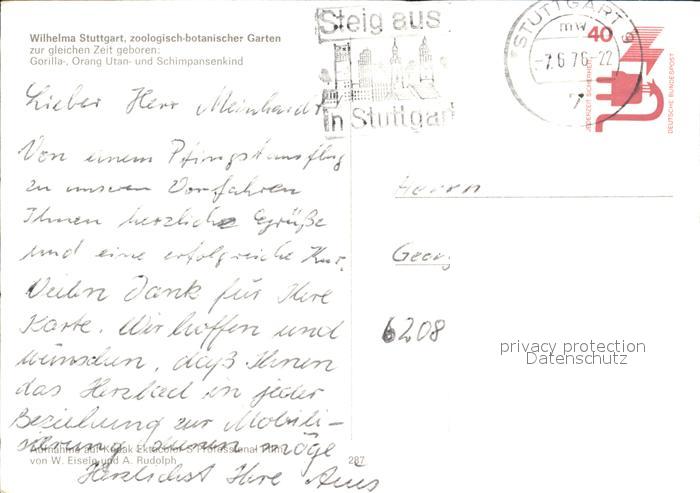 Wilhelma Stuttgart, zoologisch-botanischer Garten
zur gleichen Zeit geboren:
Gorilla-, Orang Utan- und Schimpansenkind
Steig aus
in Stuttgart
STUTTGART 9
mw
-7.6.76-22
7
40
JEDERZEIT SICHERHEIT
DEUTSCHE BUNDESPOST
Lieber Herr Meinhardt
Von einem Pfingstausflug
zu unseren Vorfahren
Ihnen herzliche Grüße
und eine erfolgreiche Kur.
Vielen Dank für Ihre
Karte. Wir hoffen und
wünschen, daß Ihnen
das Herzbad in jeder
Beziehung zur Mobili-
sierung dienen möge
Herzlichst Ihre
Herrn
Georg
6208
privacy protection
Datenschutz
Aufnahme auf Kodak Ektacolor S Professional Film
von W. Eisele und A. Rudolph
287